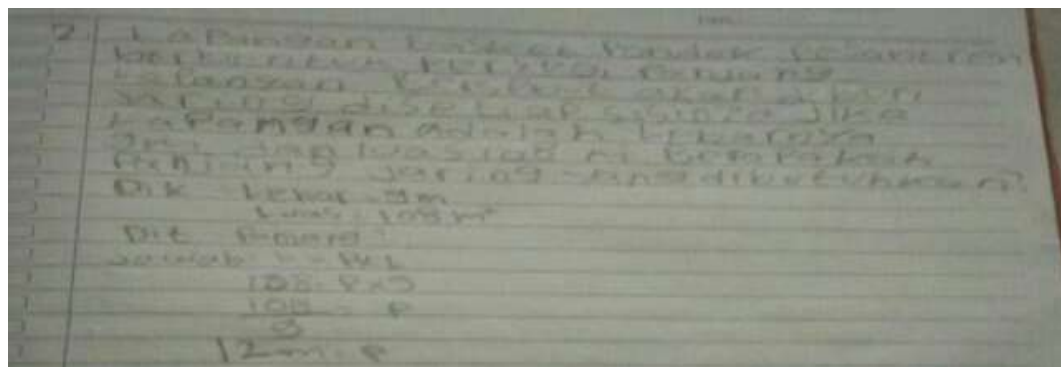 2 Lapangan basket Pondok Pesantren
berbentuk persegi Panjang
Lapangan akan di beri
jaring disetiap sisinya Jika
Lapangan adalah Lebarnya
9m dan luas 108 m berapakah
jaring yang dibutuhkan?
Dik Lebar = 9m
Luas = 108 m²
Dit
Jawab L = P x L
108 = P x 9
108 = P
9
12 m = P